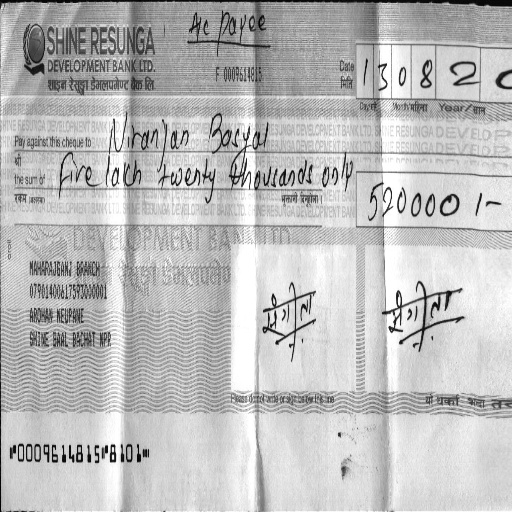 A/c Payee
SHINE RESUNGA
DEVELOPMENT BANK LTD.
शाइन रेसुङ्गा डेभलपमेन्ट बैंक लि.
F 0009614815
Date
मिति
1 3 0 8 2 0
Day/गते Month/महिना Year/साल
Pay against this cheque to Niranjan Basyal
श्री
the sum of five lakh twenty thousands only
रकम (अक्षरमा)
520000/-
MAHARAJGANJ BRANCH
07901400617593000001
AROHAN NEUPANE
SHINE BAAL BACHAT NPR
संगीता
न.
संगीता
न.
Please do not write or sign below this line
⑈0009614815⑈8101⑈